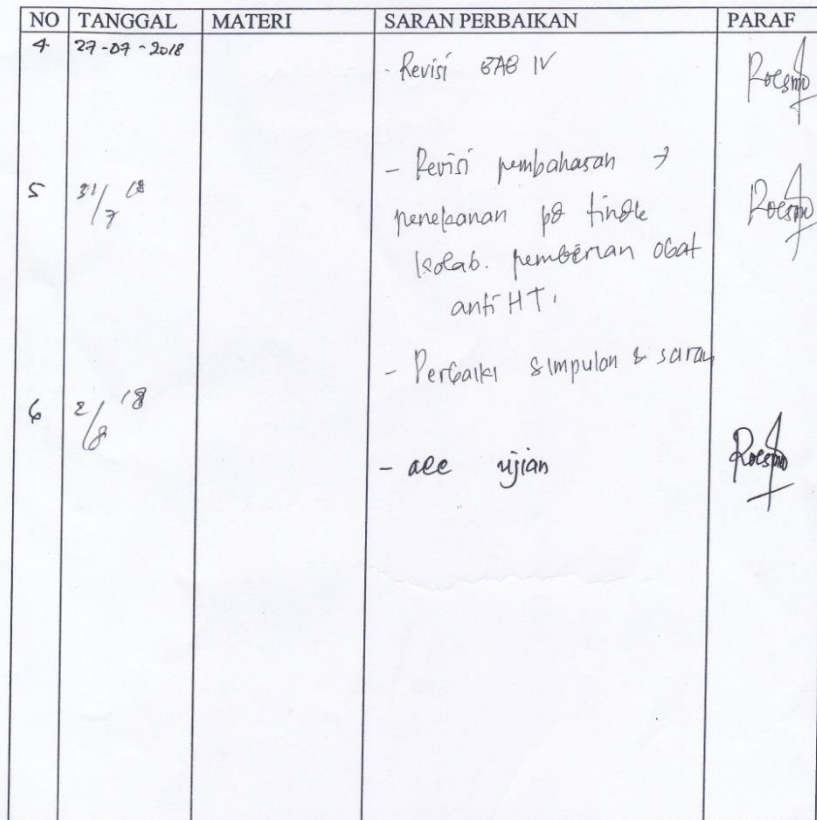 NO TANGGAL MATERI SARAN PERBAIKAN PARAF
4 27-07-2018 - Revisi BAB IV Roesmo
- Revisi pembahasan →
5 31/7 18 penekanan pd tindk Roesmo
kolab. pemberian obat
anti HT.
- Perbaiki simpulan & saran
6 2/8 18
- acc ujian Roesmo